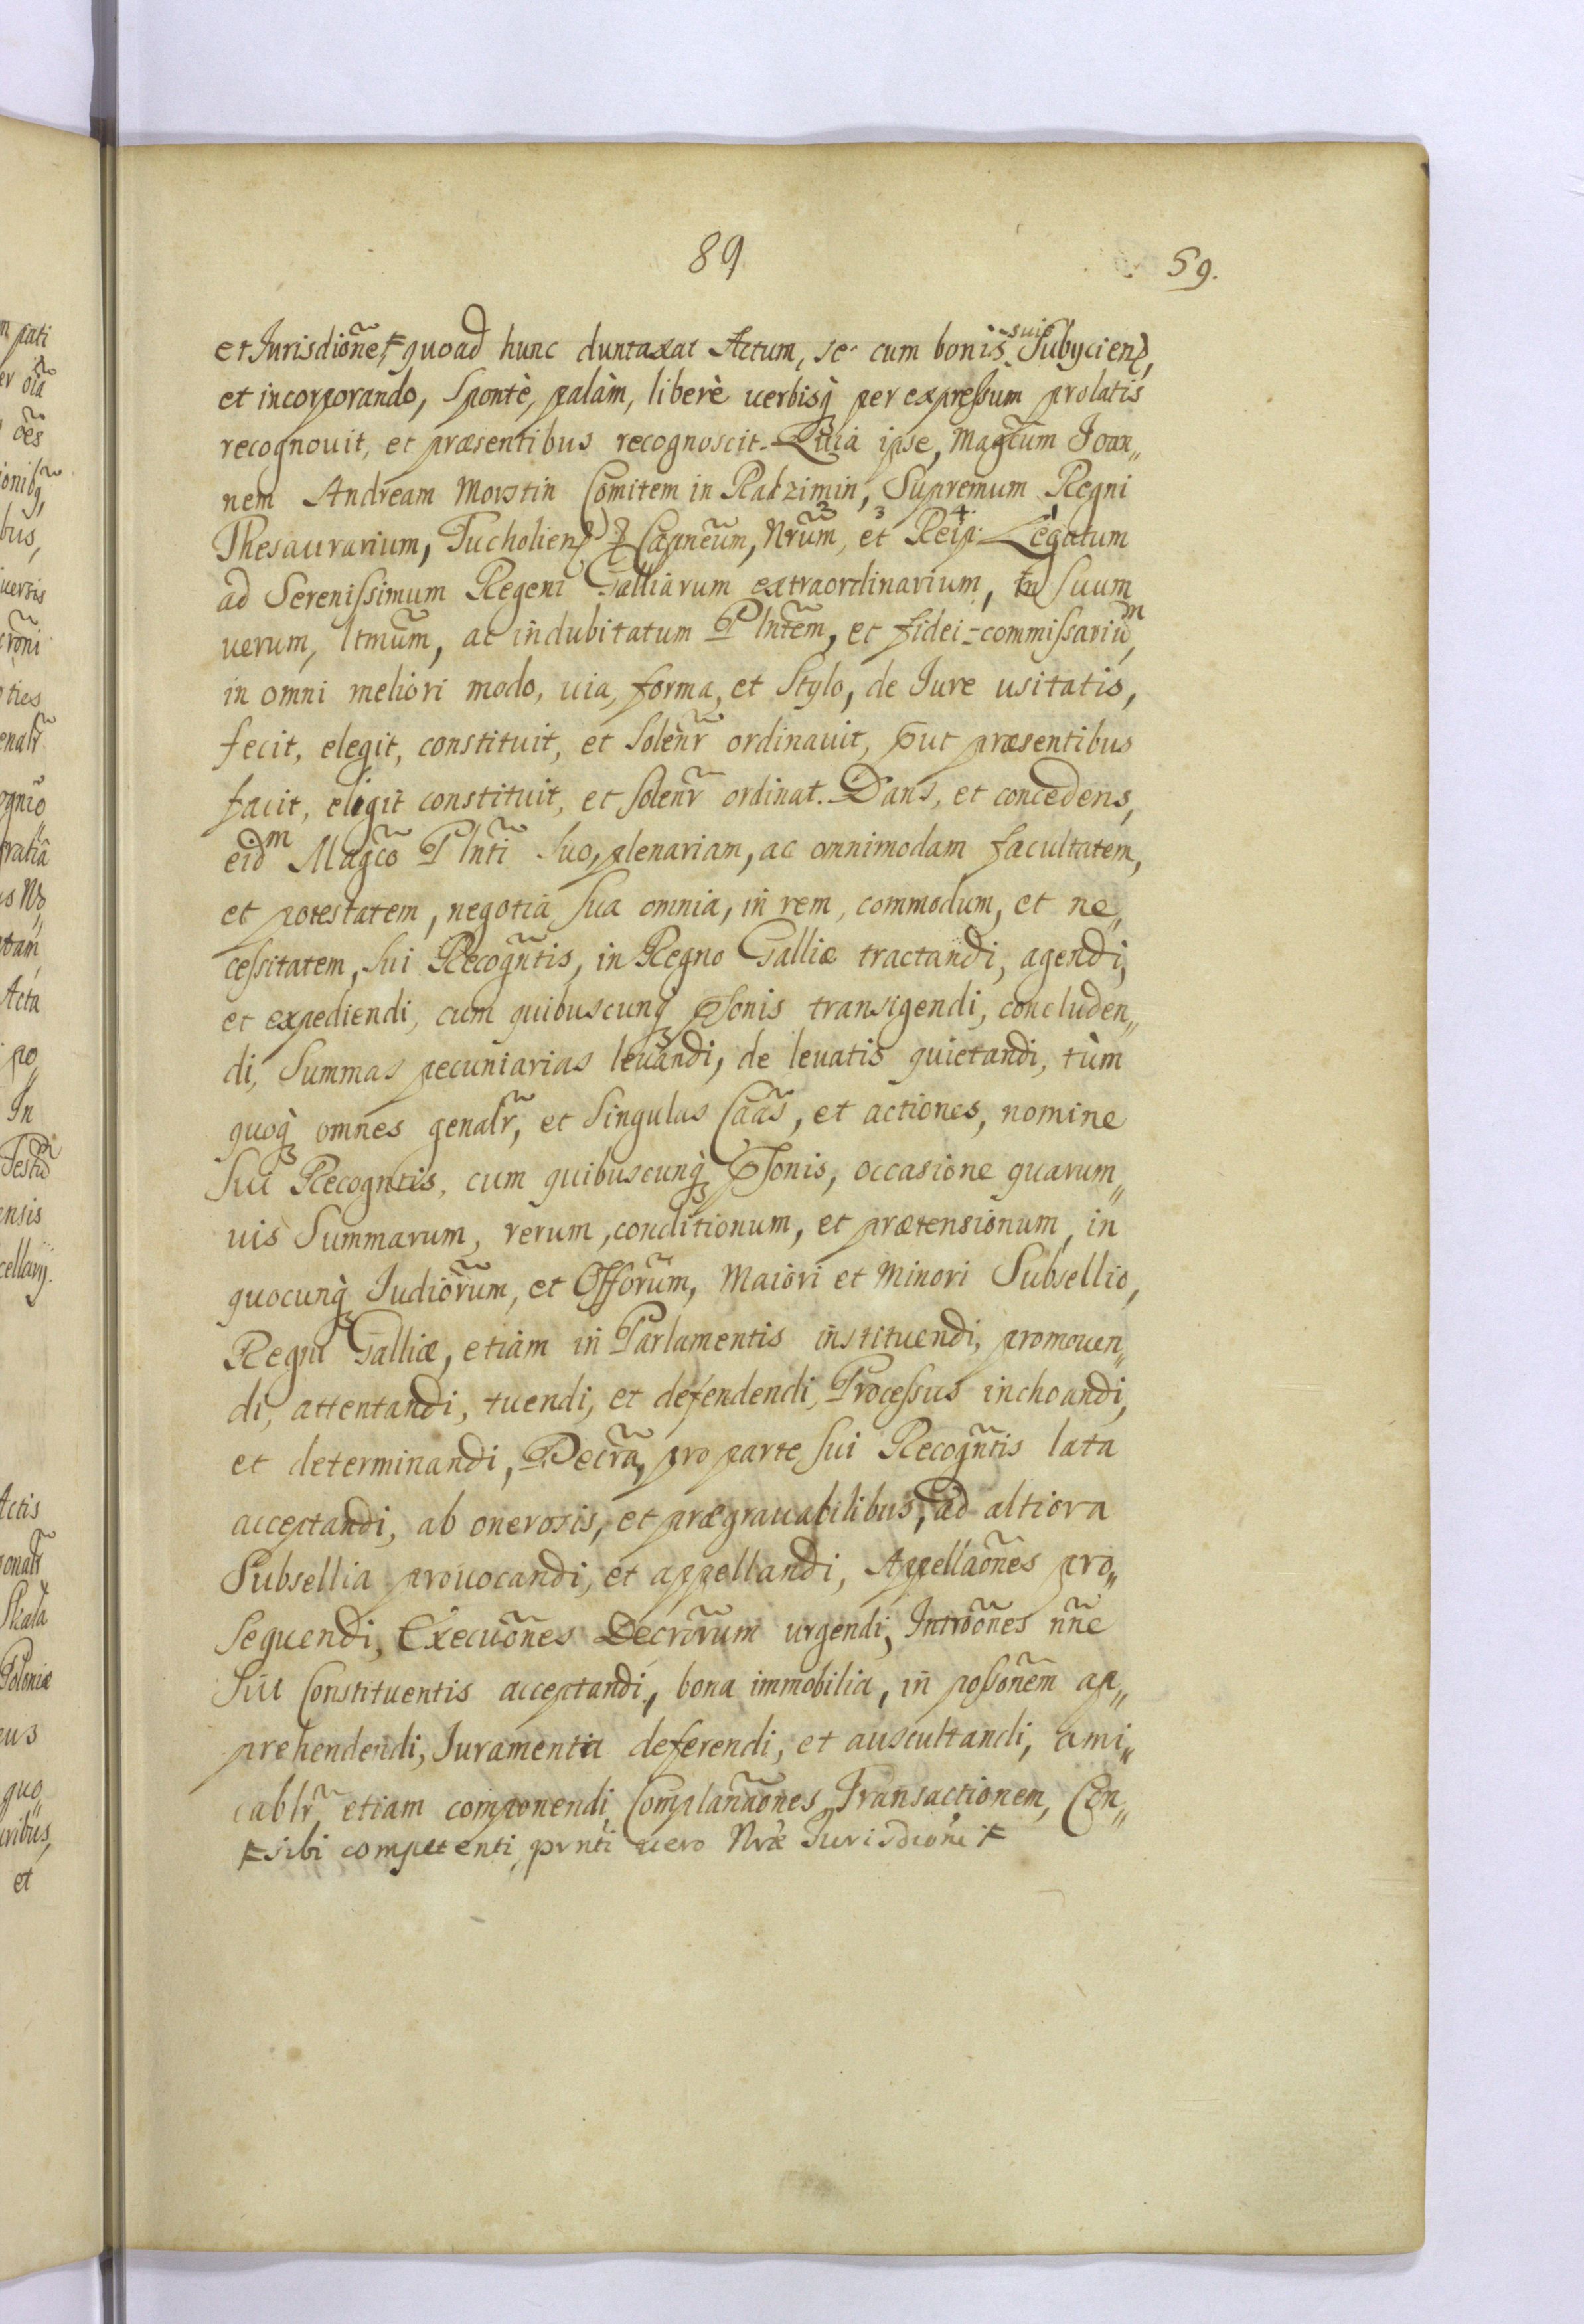 89
59.
et Jurisdiõne, ⊬ quoad hunc duntaxat Actum, se cum bonis suis Subijciend,
et incorporando, Spontè, palàm, liberè uerbisq́ per expressum prolatis
recognouit, et præsentibus recognoscit. Quia ipse, Magcũm Joan„
nem Andream Morstin Comitem in Radzimin, Supremum Regni
Thesaurarium, Tucholien Capneũm, Nrũm, et Reip: Legatum
ad Serenissimum Regem Galliarum extraordinarium, in Suum
uerum, ltmũm, ac indubitatum Plntẽm, et fidei-commissariũm,
in omni meliori modo, uia, forma, et Stylo, de Iure usitatis,
fecit, elegit, constituit, et Solenr̃ ordinauit, put præsentibus
facit, eligit constituit, et solenr̃ ordinat. Dans, et concedens,
eidm Magcõ Plnti Suo, plenariam, ac omnimodam facultatem,
et potestatem, negotia Sua omnia, in rem, commodum, et ne„
cessitatem, Sui Recogñtis, in Regno Galliæ tractandi, agendi,
et expediendi, cum quibuscunq́ Psonis transigendi, concluden„
di, Summas pecuniarias leuandi, de leuatis quietandi, tùm
quoq́ omnes genalr̃, et Singulas Caãs, et actiones, nomine
Sui Recogntis, cum quibuscunq́ Psonis, occasione quarum„
uis Summarum, rerum, conditionum, et prætensionum, in
quocunq́ Iudiõrum, et Offõrum, Maiori et Minori Subsellio,
Regni Galliæ, etiam in Parlamentis instituendi, promouen„
di, attentandi, tuendi, et defendendi, Processus inchoandi,
et determinandi, Decrã, pro parte Sui Recogñtis lata
acceptandi, ab onerosis, et prægrauabilibus, ad altiora
Subsellia prouocandi, et appellandi, Appellaõnes pro„
sequendi, Execuõnes Decrõrum urgendi, Introõnes nñe
Sui Constituentis acceptandi, bona immobilia, in possonẽm ap„
prehendendi, Iuramentia deferendi, et auscultandi, ami„
cablr̃ etiam componendi Complanãones, Transactionem, Con„
⊬ sibi competenti, prnti uero Nræ Jurisdioni ⊬